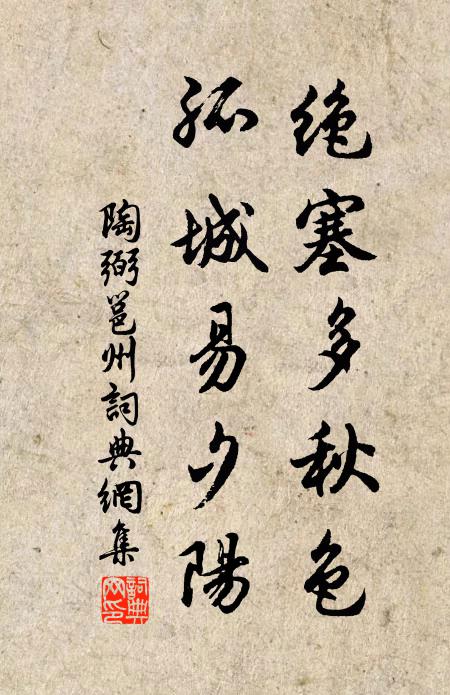 绝塞多秋色
孤城易夕陽
陶弼邕州詞典網集
詞典網印